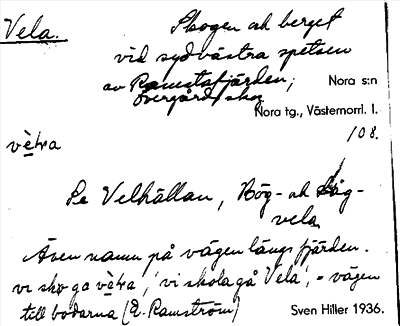 Vela.
Skogen och berget
vid sydvästra spetsen
av Ramstafjärden;
Övergård skog
Nora s:n
Nora tg., Västernorrl. l.
108.
vè̱ḷa
Se Velhällan, Hög- och Låg-
vela
Även namn på vägen längs fjärden.
vi sko ga vèḷa, 'vi skola gå Vela', = vägen
till bodarna (E. Ramström)
Sven Hiller 1936.